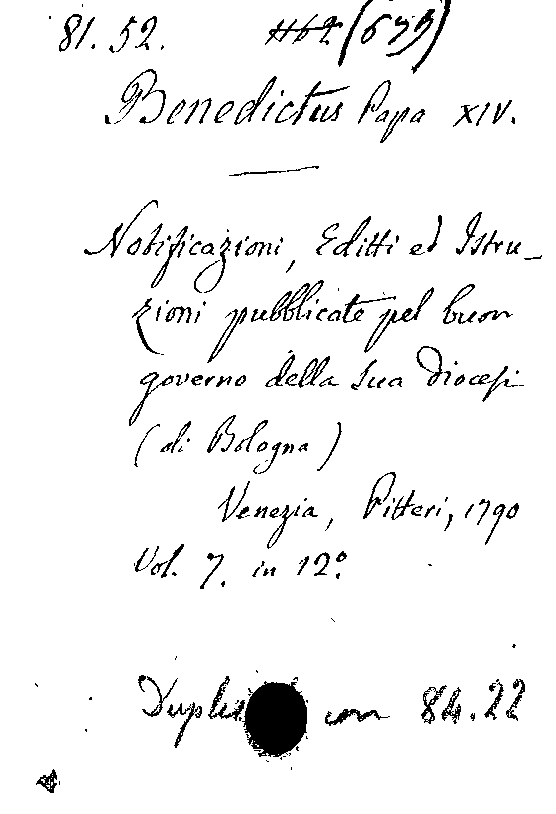 81.52. (679)
Benedictus Papa XIV.
Notificazioni, Editti ed Istru-
zioni pubblicate pel buon
governo della sua Diocesi
(di Bologna)
Venezia, Pitteri, 1790
Vol. 7. in 12º
84.22